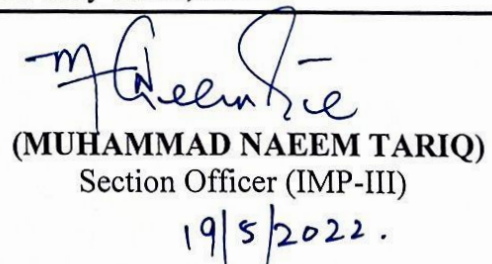 (MUHAMMAD NAEEM TARIQ)
Section Officer (IMP-III)
19/5/2022.